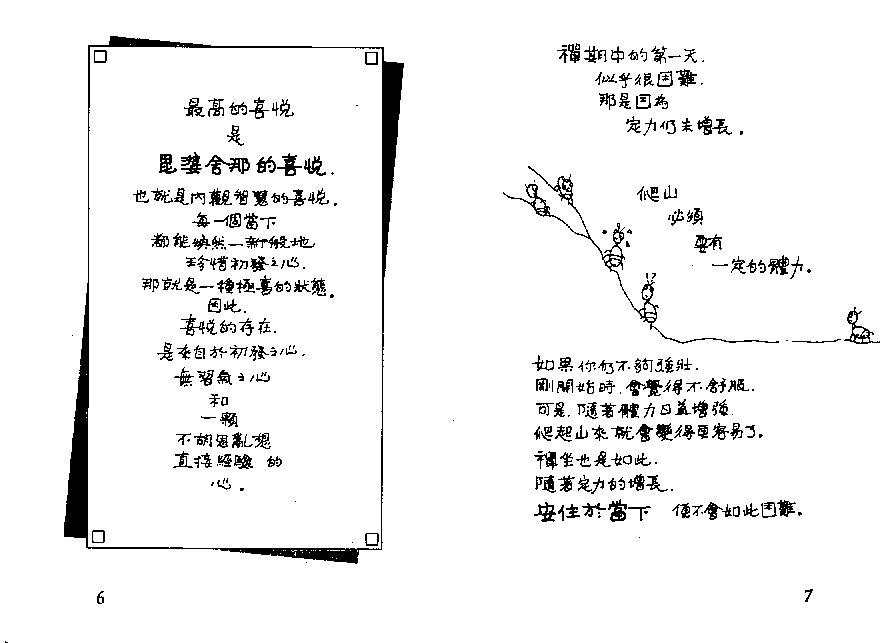 最高的喜悅
是
毘婆舍那的喜悅.
也就是內觀智慧的喜悅。
每一個當下
都能煥然一新般地
珍惜初發之心.
那就是一種極喜的狀態。
因此.
喜悅的存在.
是來自於初發之心.
無習氣之心
和
一顆
不胡思亂想
直接經驗 的
心。
6
禪期中的第一天.
似乎很困難.
那是因為
定力仍未增長。
爬山
必須
要有
一定的體力。
如果你仍不夠強壯.
剛開始時.會覺得不舒服.
可是.隨著體力日益增強.
爬起山來就會變得更容易了。
禪坐也是如此.
隨著定力的增長.
安住於當下 便不會如此困難。
7